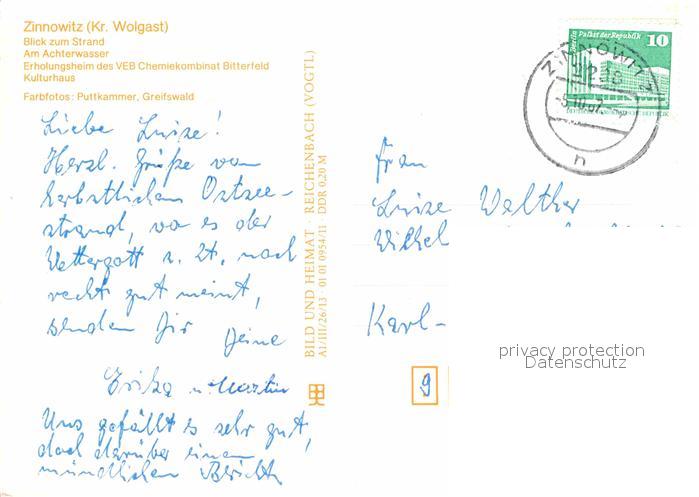 Zinnowitz (Kr. Wolgast)
Blick zum Strand
Am Achterwasser
Erholungsheim des VEB Chemiekombinat Bitterfeld
Kulturhaus
Farbfotos: Puttkammer, Greifswald
Liebe Luise!
Herzl. Grüße vom
herbstlichen Ostsee-
strand, wo es der
Wettergott z. Zt. noch
recht gut meint,
senden Dir Deine
Erika u. Martin
Uns gefällt es sehr gut,
doch darüber einen
mündlichen Bericht
BILD UND HEIMAT · REICHENBACH (VOGTL)
A1/III/26/13 01 01 0954/11 DDR 0,20 M
Berlin Palast der Republik 10
ZINNOWITZ
2238
h
Frau
Luise Walther
Karl-
9
privacy protection
Datenschutz